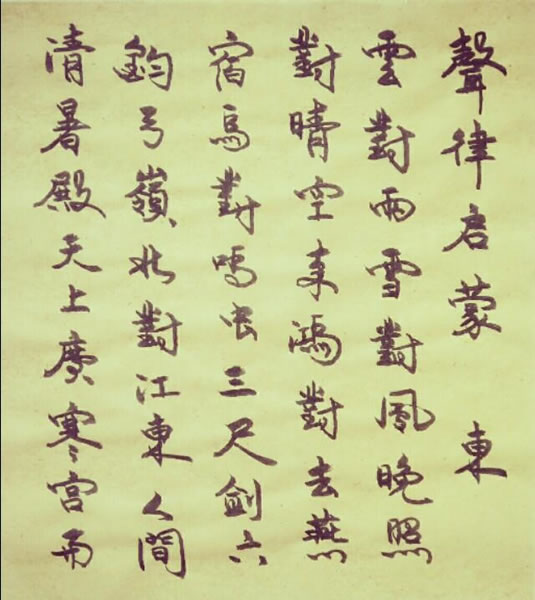 聲律启蒙 東
雲對雨雪對風晚照
對晴空来鴻對去燕
宿鳥對鳴虫三尺劍六
鈞弓嶺北對江東人間
清暑殿天上廣寒宫兩